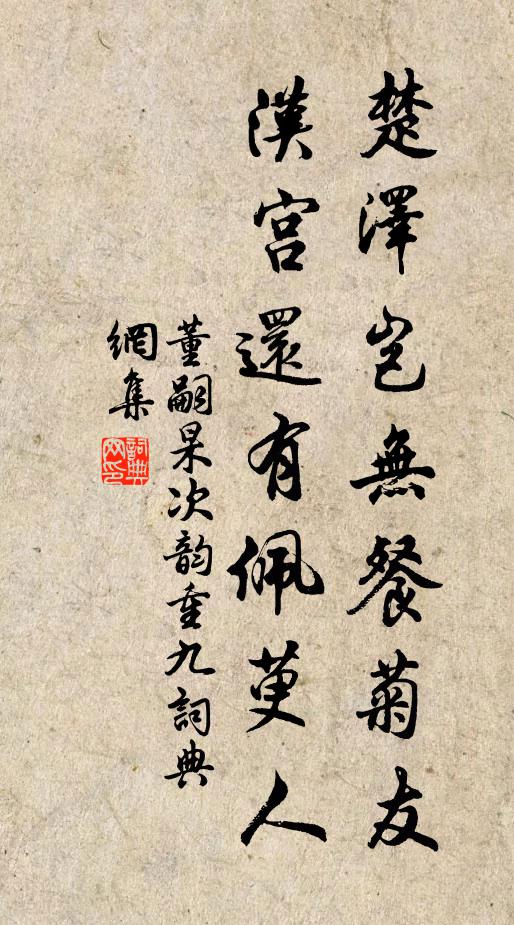 楚澤豈無餐菊友
漢宮還有佩萸人
董嗣杲次韵重九詞典
網集
詞典網印